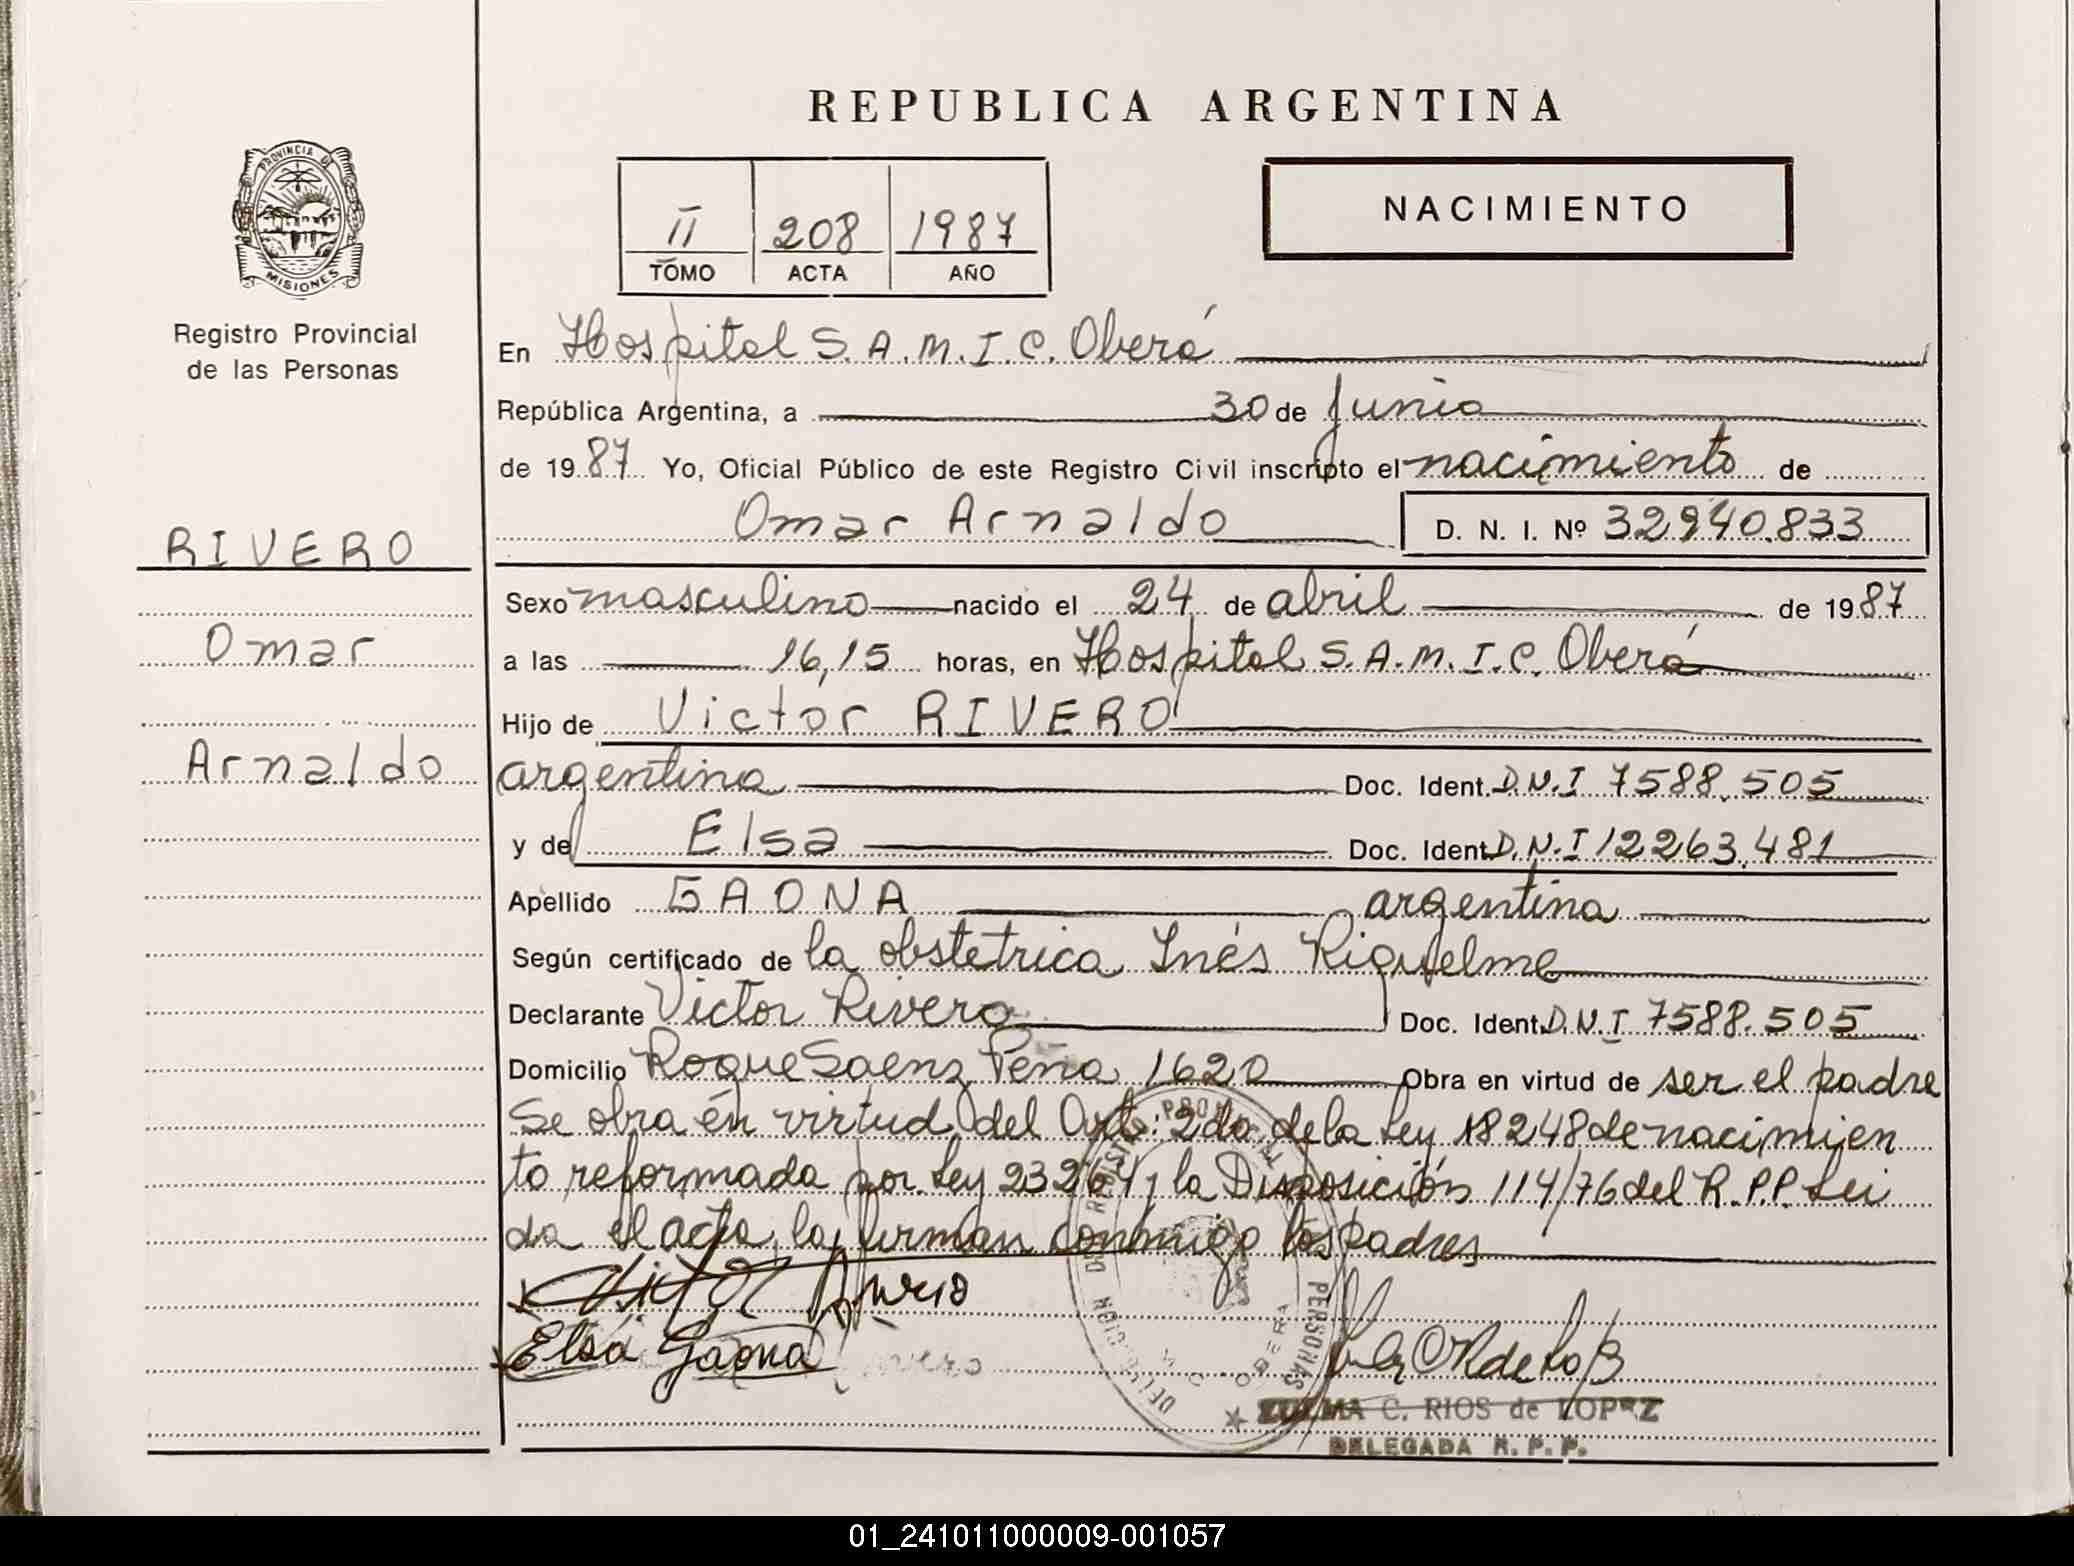 REPUBLICA ARGENTINA
PROVINCIA DE
MISIONES
Registro Provincial
de las Personas
II 208 1987
TOMO ACTA AÑO
NACIMIENTO
En Hospital S.A.M.I.C. Oberá
República Argentina, a 30 de Junio
de 1987 Yo, Oficial Público de este Registro Civil inscripto el nacimiento de
Omar Arnaldo D. N. I. Nº 32940.833
RIVERO
Omar
Arnaldo
Sexo masculino nacido el 24 de abril de 1987
a las 16,15 horas, en Hospital S.A.M.I.C. Oberá
Hijo de Victor RIVERO
argentina Doc. Ident. D.N.I 7588.505
y de Elsa Doc. Ident. D.N.I 12263.481
Apellido GAONA argentina
Según certificado de la obstetrica Inés Riquelme
Declarante Victor Rivero Doc. Ident. D.N.I 7588.505
Domicilio Roque Saenz Peña 1620 Obra en virtud de ser el padre
Se obra en virtud del Art: 2do de la Ley 18248 de nacimien
to reformada por Ley 23264 y la Disposición 114/76 del R.P.P. Lei
da el acta, la firman conmigo los padres
Victor
Elsa Gaona
PERSONAS
OBERA
ZULMA C. RIOS de LOPEZ
DELEGADA R. P. P.
01_241011000009-001057